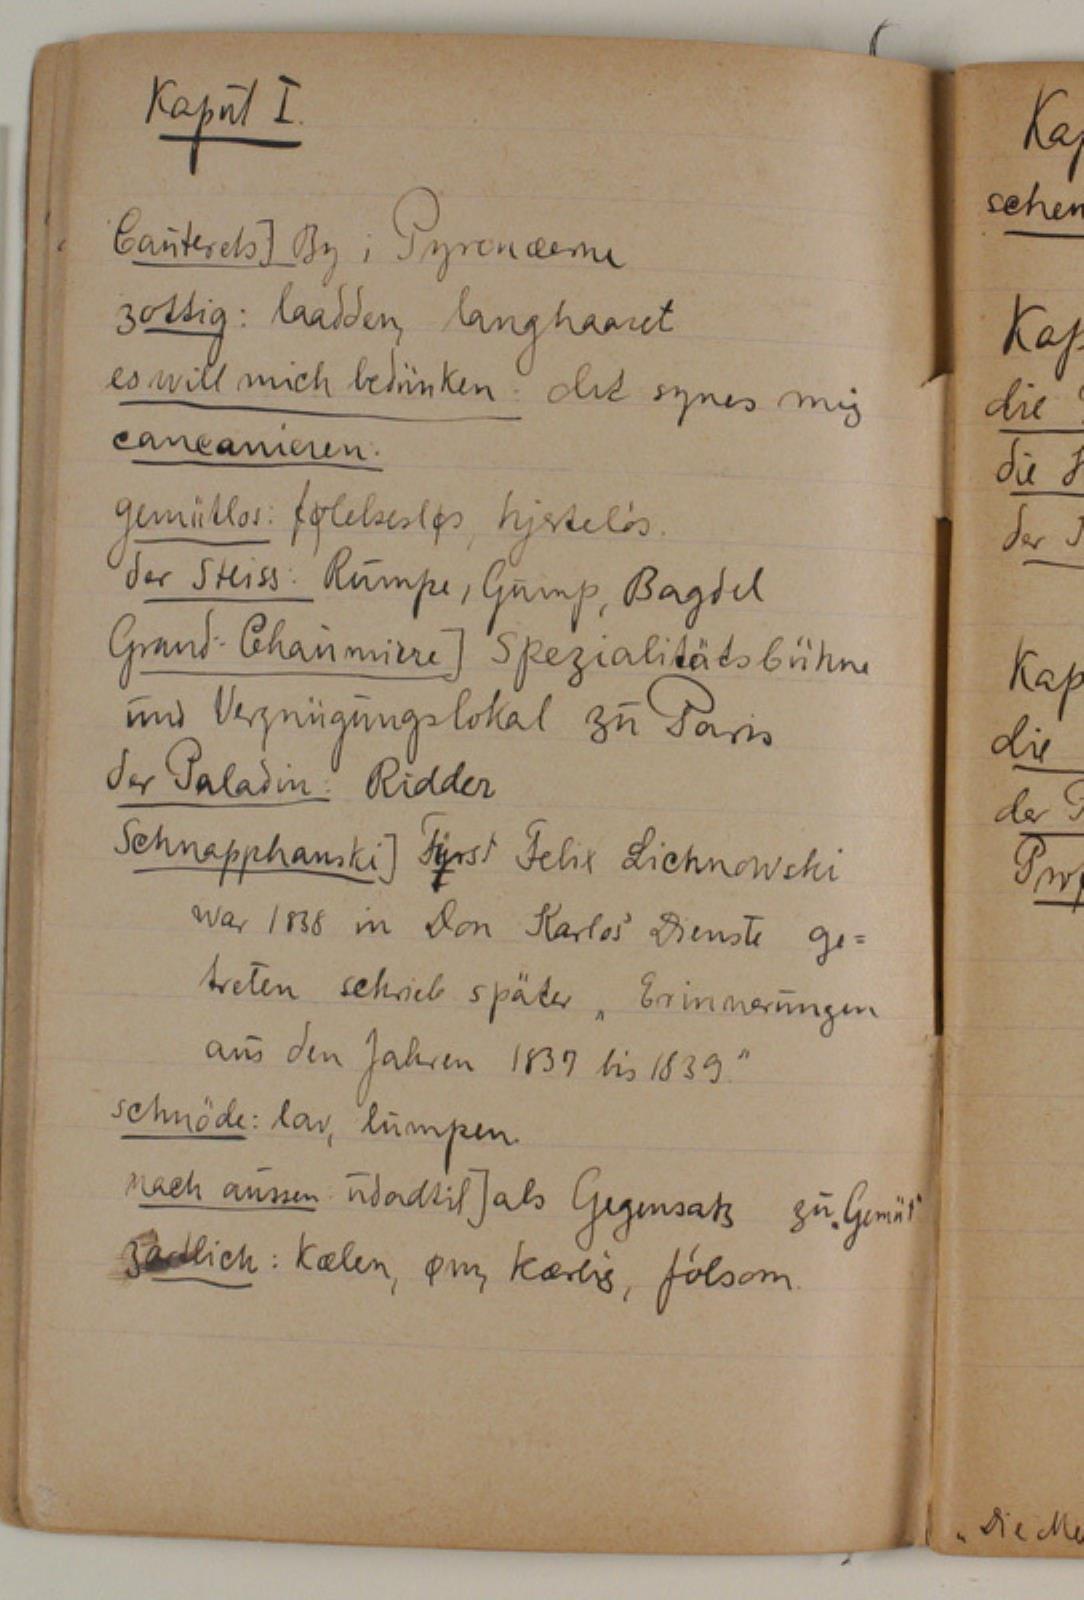 Kaput I.
Cauterets] By i Pyrenæerne
zottig: laadden, langhaaret
es will mich bedünken: det synes mig
cancanieren:
gemütlos: følelsesløs, hjerteløs.
der Steiss: Rumpe, Gump, Bagdel
Grand-Chaumiere] Spezialitätsbühne
und Vergnügungslokal zu Paris
der Paladin: Ridder
Schnapphanski] Fürst Felix Lichnowski
war 1838 in Don Karlos' Dienste ge=
treten schrieb später „Erinnerungen
aus den Jahren 1837 bis 1839"
schnöde: lav, lumpen.
nach aussen: udadtil] als Gegensatz zu „Gemüt"
zärtlich: kælen, øm, kærlig, følsom.
Kap
schen
Kap
die
die
der
Kap
die
der
„Die Me